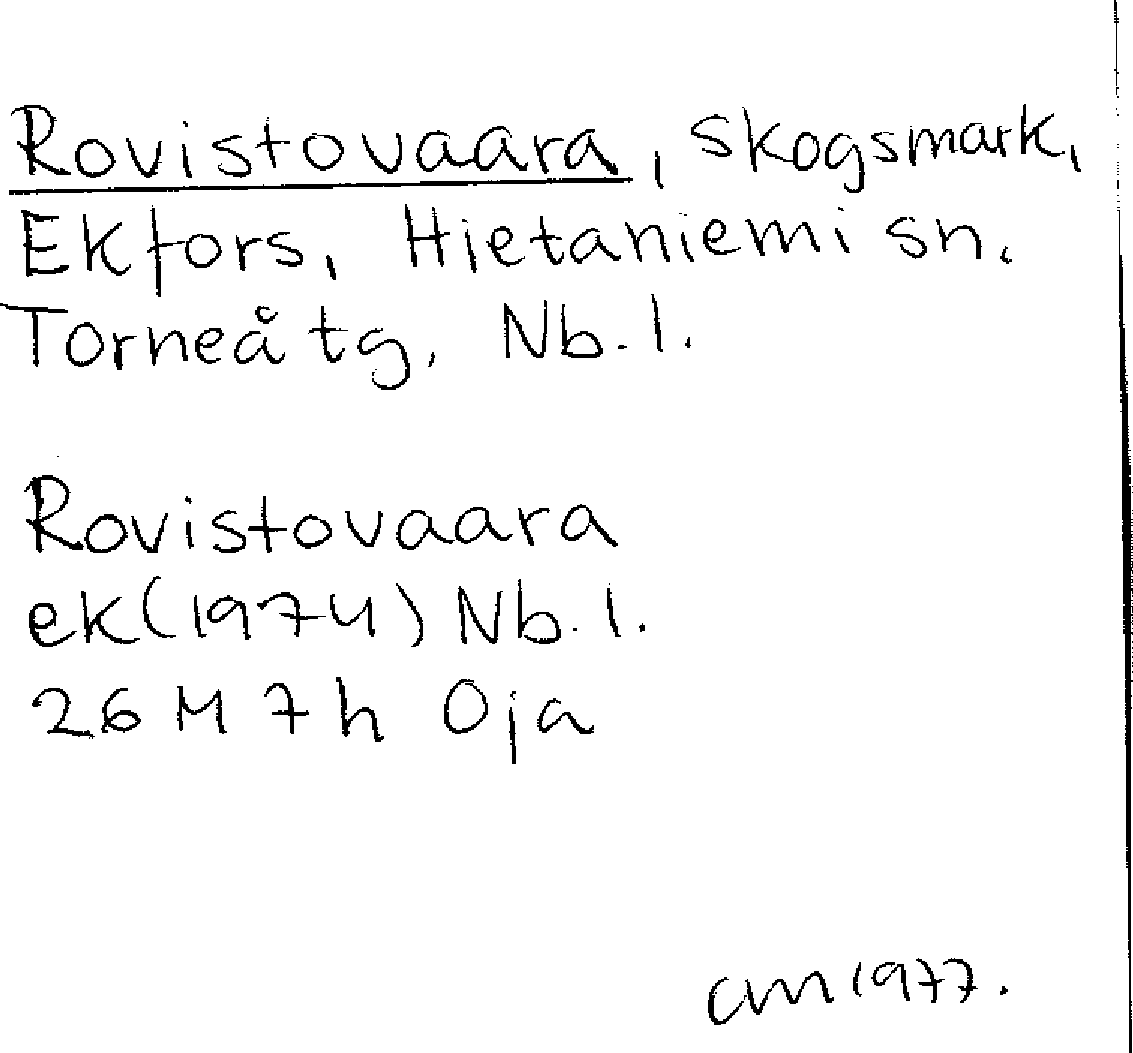 Rovistovaara, skogsmark,
Ekfors, Hietaniemi sn.
Torneå tg, Nb.l.
Rovistovaara
ek(1974) Nb.l.
26 M 7h Oja
cm 1977.